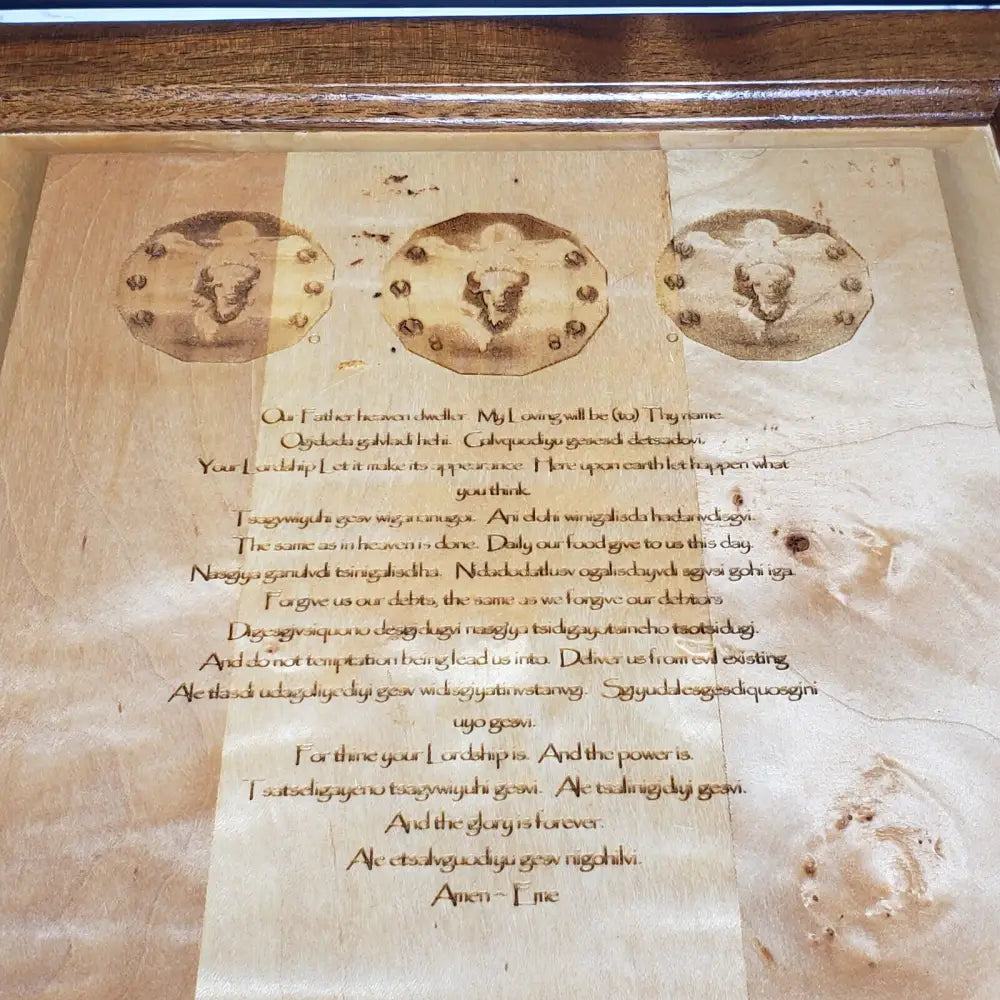 Our Father heaven dweller. My Loving will be (to) Thy name.
Ogidoda galvladi hehi. Galvquodiyu gesesdi detsadovi.
Your Lordship Let it make its appearance. Here upon earth let happen what
you think.
Tsagvwiyuhi gesv wigananugoi. Ani elohi winigalisda hadanvdisgvi.
The same as in heaven is done. Daily our food give to us this day.
Nasgiya galvladi tsinigalisdiha. Nidadodatlusv ogalisdayvdi sgivsi gohi iga.
Forgive us our debts, the same as we forgive our debtors
Digesgivsiquono desgidugvi nasgiya tsidigayotsineho tsotsidugi.
And do not temptation being lead us into. Deliver us from evil existing
Ale tlasdi udagoliyediyi gesv widisgiyatinvstanvgi. Sgiyudalesgesdiquosgini
uyo gesvi.
For thine your Lordship is. And the power is.
Tsatseligayeno tsagvwiyuhi gesvi. Ale tsalinigidiyi gesvi.
And the glory is forever.
Ale etsalvquodiyu gesv nigohilvi.
Amen ~ Eme